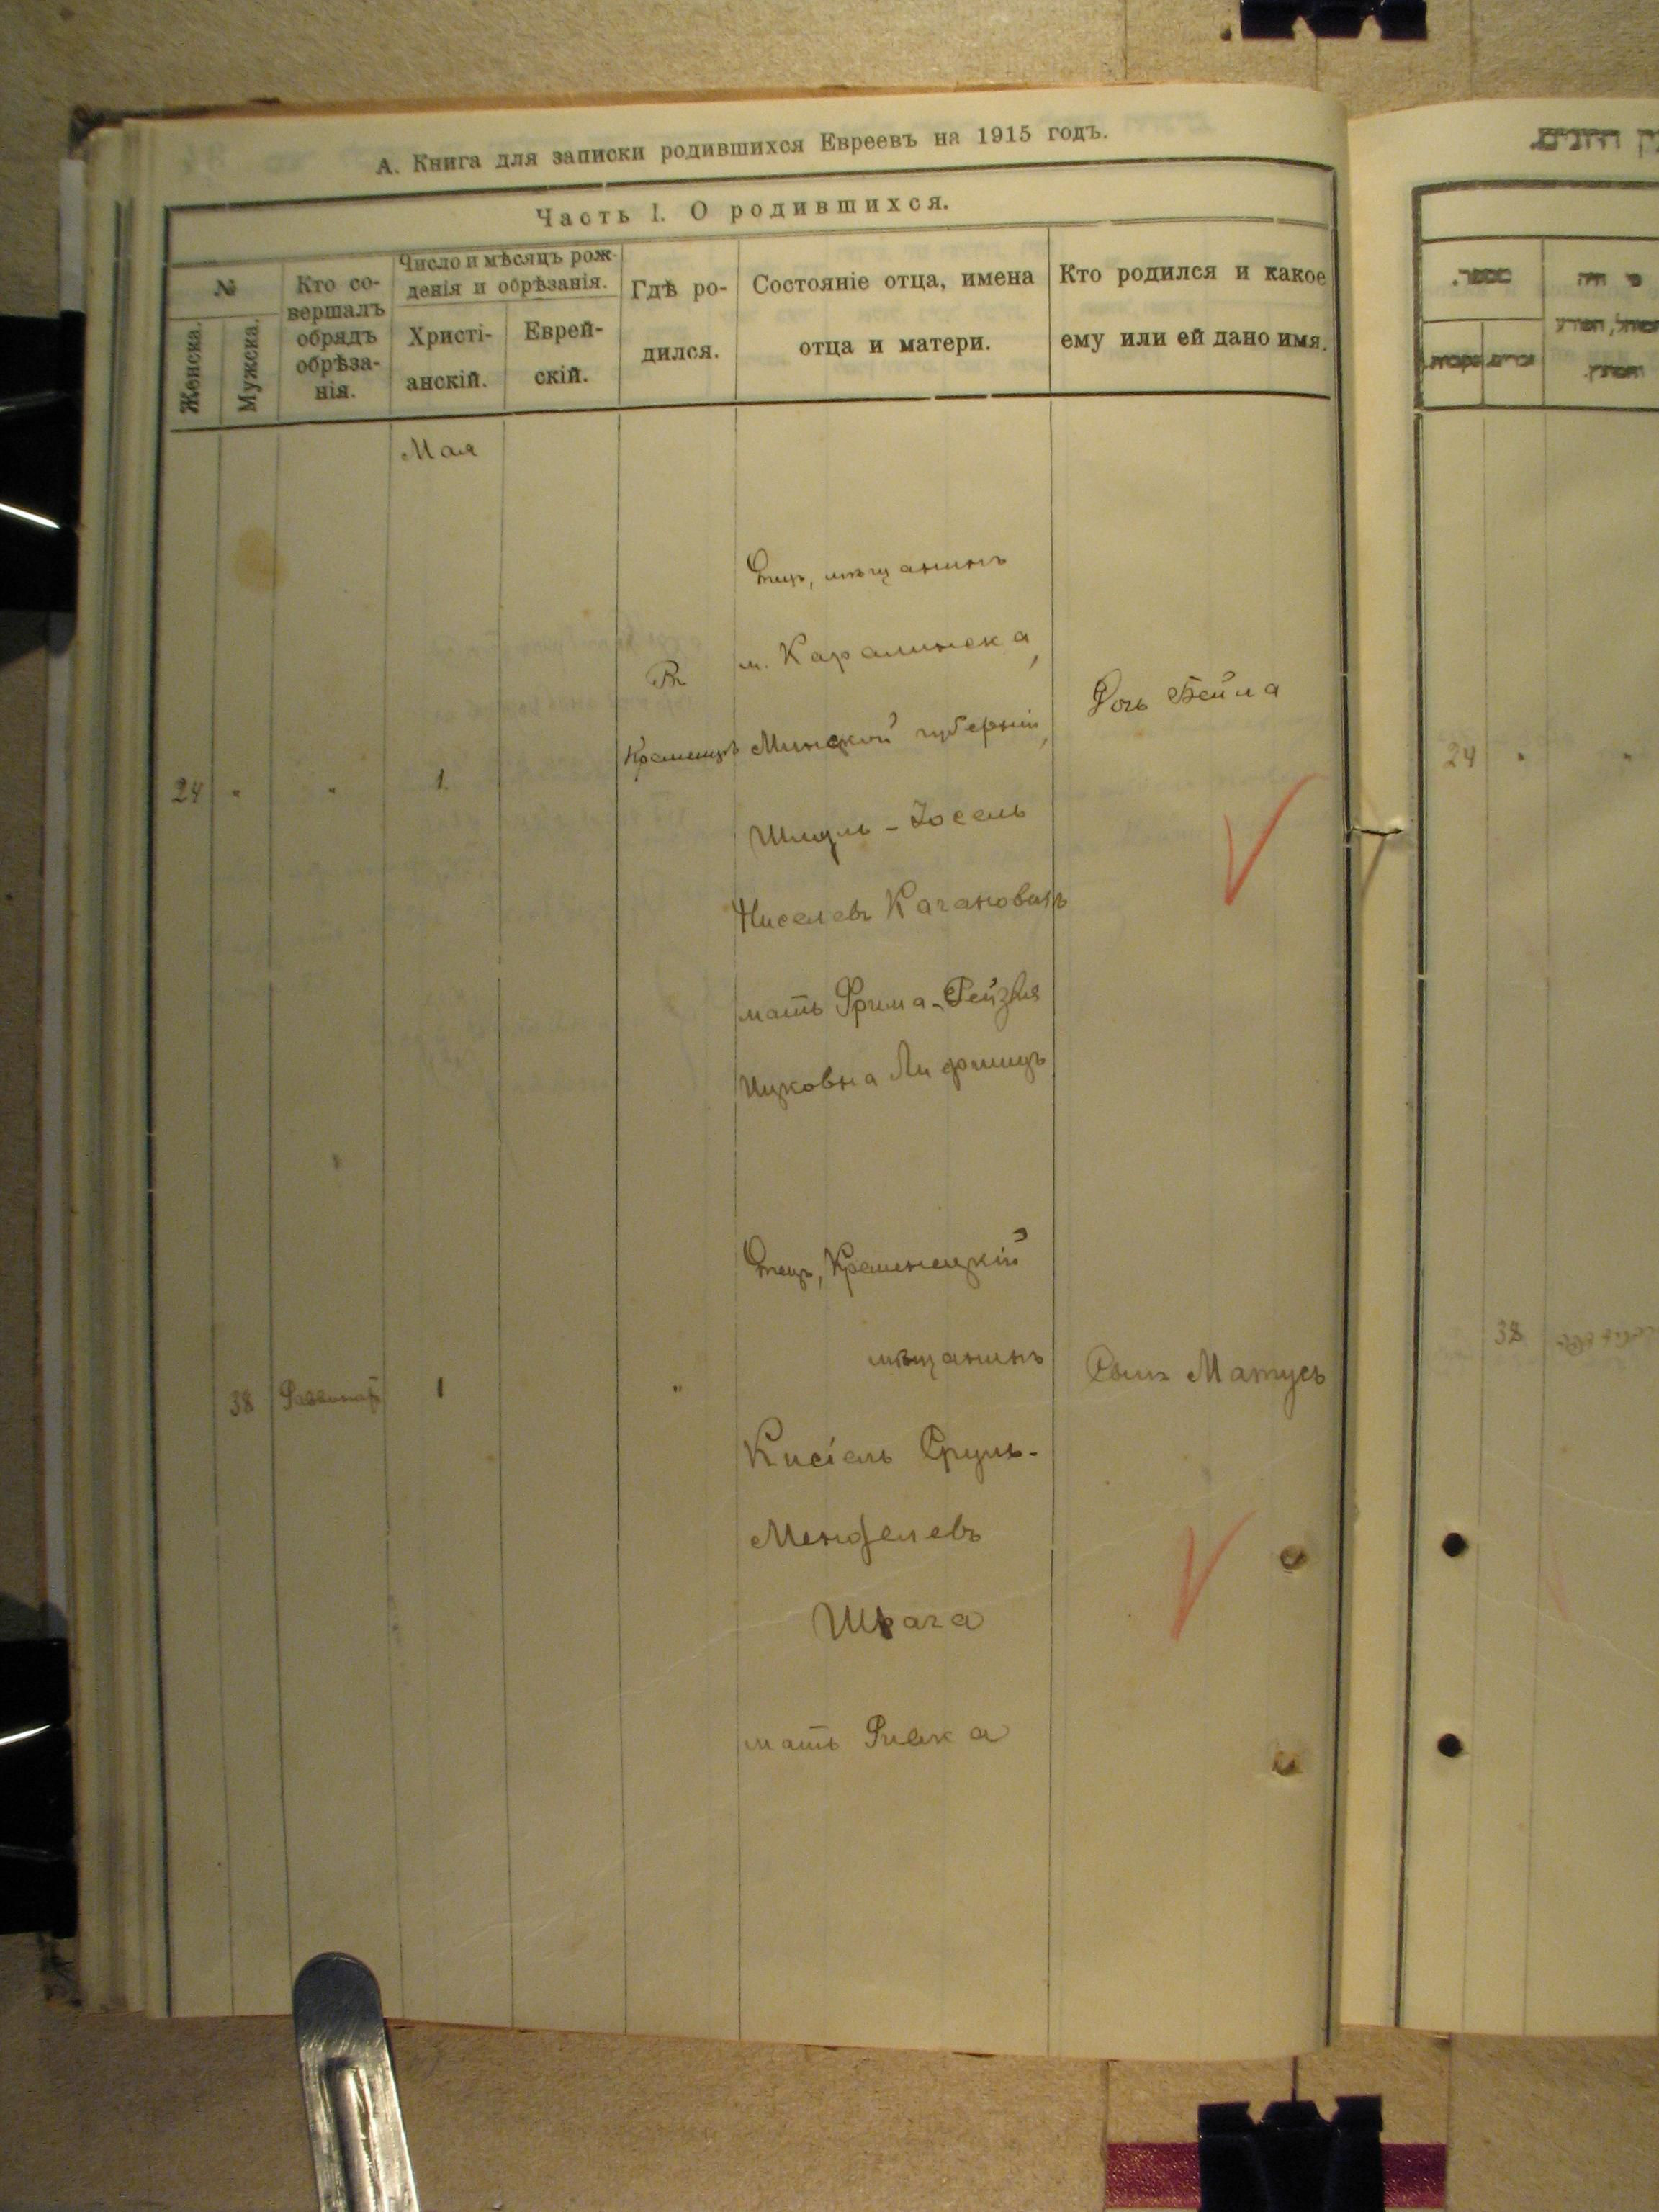 А. Книга для записки родившихся Евреевъ на 1915 годъ.
Часть I. О родившихся.
№
Женска.
Мужска.
Кто со-
вершалъ
обрядъ
обрѣза-
нія.
Число и мѣсяцъ рож-
денія и обрѣзанія.
Христі-
анскій.
Еврей-
скій.
Гдѣ ро-
дился.
Состояніе отца, имена
отца и матери.
Кто родился и какое
ему или ей дано имя.
Мая
24 " " 1.
Въ
Кременцѣ
Отецъ, мѣщанинъ
м. Каралинска,
Минской губерніи,
Шмуль-Іосель
Ниселевъ Кагановичъ
мать Фрима-Рейзля
Ицковна Лифшицъ
Дочь Бейла
38 1 "
Отецъ, Кременецкій
мѣщанинъ
Кисіель Сруль-
Менделевъ
Шрага
мать Ривка
Сынъ Матусъ
24 " "
38